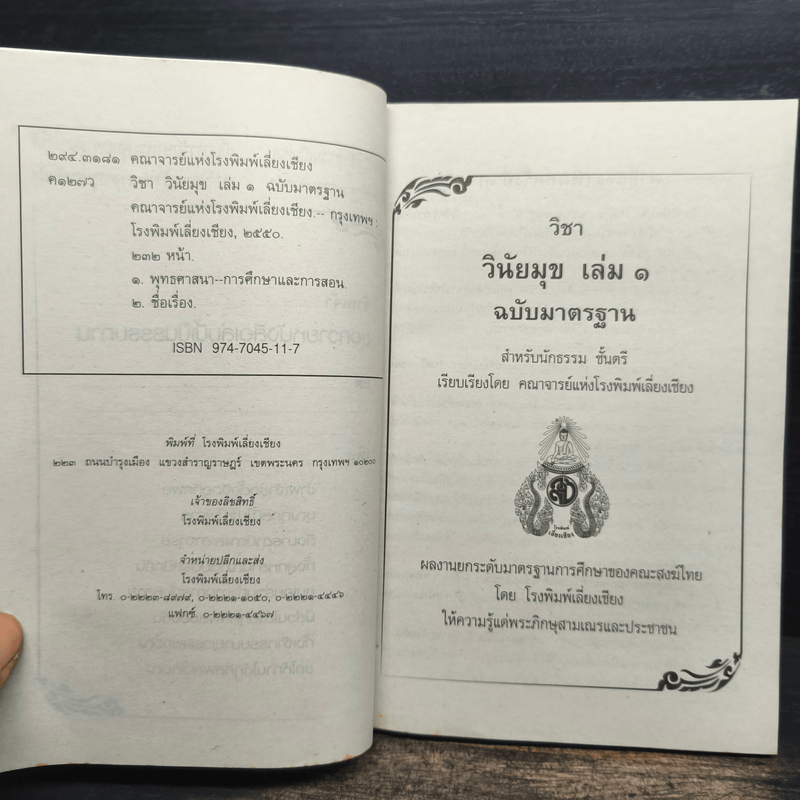 ๒๙๔.๓๑๘๑ คณาจารย์แห่งโรงพิมพ์เลี่ยงเชียง
ค๑๒๗ว วิชา วินัยมุข เล่ม ๑ ฉบับมาตรฐาน
คณาจารย์แห่งโรงพิมพ์เลี่ยงเชียง.-- กรุงเทพฯ :
โรงพิมพ์เลี่ยงเชียง, ๒๕๕๐.
๒๓๒ หน้า.
๑. พุทธศาสนา--การศึกษาและการสอน.
๒. ชื่อเรื่อง.
ISBN 974-7045-11-7
พิมพ์ที่ โรงพิมพ์เลี่ยงเชียง
๒๒๓ ถนนบำรุงเมือง แขวงสำราญราษฎร์ เขตพระนคร กรุงเทพฯ ๑๐๒๐๐
เจ้าของลิขสิทธิ์
โรงพิมพ์เลี่ยงเชียง
จำหน่ายปลีกและส่ง
โรงพิมพ์เลี่ยงเชียง
โทร. ๐-๒๒๒๓-๘๙๗๙, ๐-๒๒๒๑-๑๐๕๐, ๐-๒๒๒๑-๔๔๔๖
แฟกซ์. ๐-๒๒๒๑-๔๔๖๗
วิชา
วินัยมุข เล่ม ๑
ฉบับมาตรฐาน
สำหรับนักธรรม ชั้นตรี
เรียบเรียงโดย คณาจารย์แห่งโรงพิมพ์เลี่ยงเชียง
โรงพิมพ์
เลี่ยงเชียง
ผลงานยกระดับมาตรฐานการศึกษาของคณะสงฆ์ไทย
โดย โรงพิมพ์เลี่ยงเชียง
ให้ความรู้แด่พระภิกษุสามเณรและประชาชน